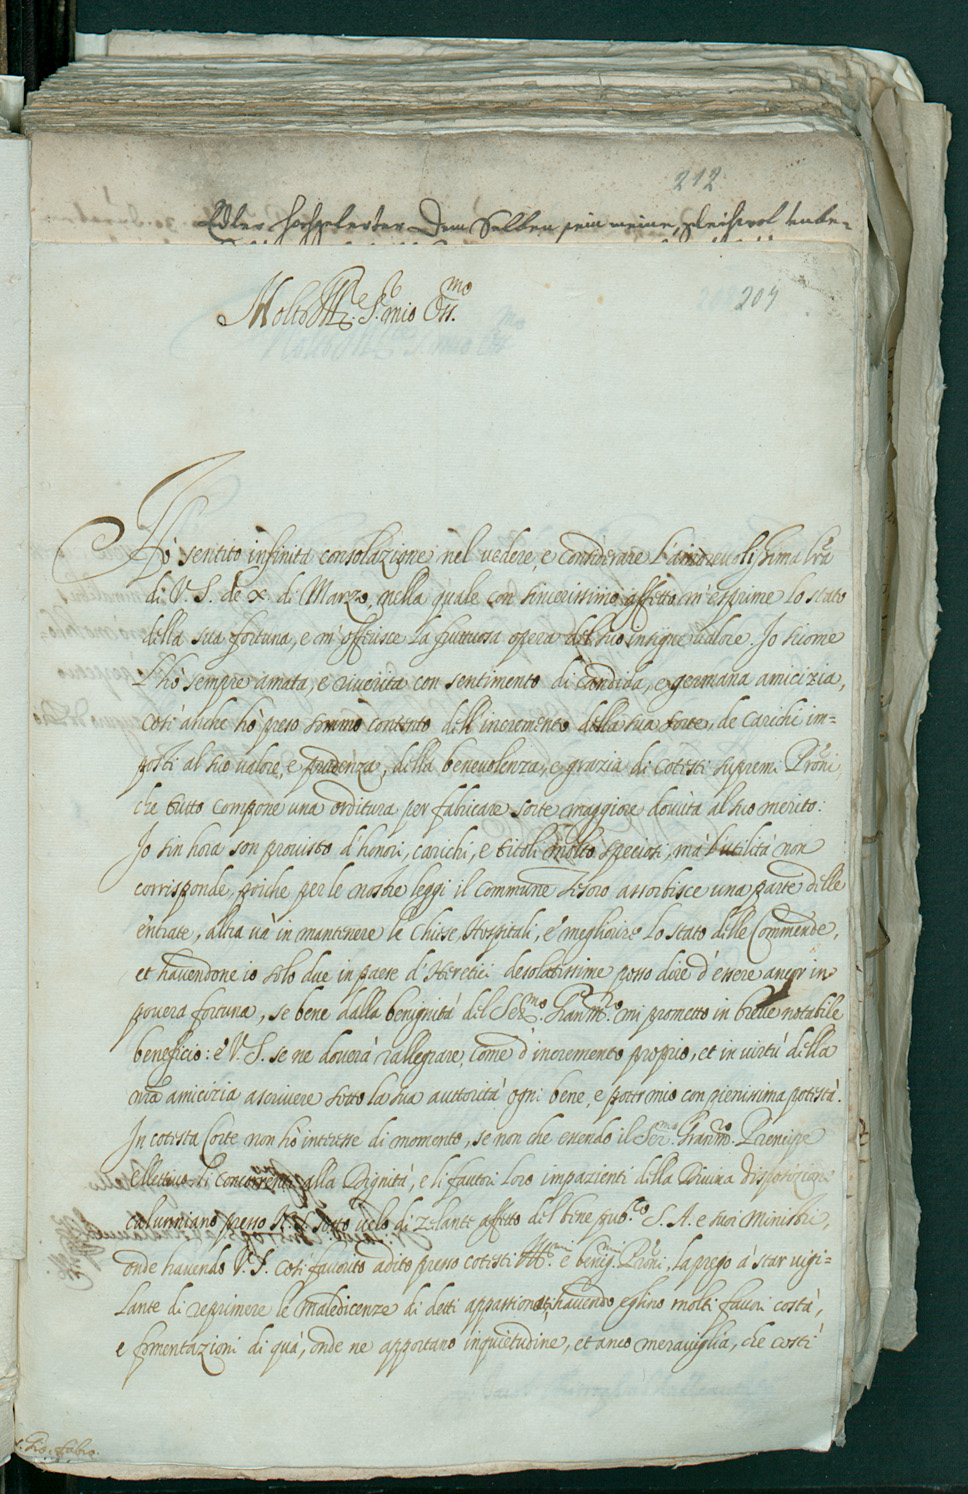 212
Edler hochgelerter Dem Selben sein meine, gleichwol unbe=
Molto Ill.re S.r mio Oss.mo
207
Hò sentito infinita consolazione nel vedere, e considerare l'amorevolissima lr̃a
di V. S. de x di Marzo, nella quale con sincerissimo affetto m'esprime lo stato
della sua fortuna, e m'offerisce la fruttuosa opera del suo insigne valore. Io sicome
l'hò sempre amata, e riverita con sentimento di candida, e germana amicizia,
così anche hò preso sommo contento dell'incremento della sua sorte, de carichi im=
posti al suo valore, e prudenza, della benevolenza, e grazia di cotesti supremi Prõni
che tutto compone una orditura per fabricare sorte maggiore dovuta al suo merito:
Io sin hora son provisto d'honori, carichi, e titoli molto speciosi, mà l'utilità non
corrisponde, poiche per le nostre leggi il Commune Tesoro assorbisce una parte delle
entrate, altra và in mantenere le Chiese, Hospitali, e megliorire lo stato delle Commende,
et havendone io solo due in paese d'Heretici desolatissime posso dire d'essere ancor in
povera fortuna, se bene dalla benignità del Ser.mo Gran M.ro mi prometto in breve notabile
beneficio: e V. S. se ne doverà rallegrare, come d'incremento proprio, et in virtù della
nr̃a amicizia ascrivere sotto la sua auttorità ogni bene, e poter mio con pienissima potestà.
In cotesta Corte non hò interesse di momento, se non che essendo il Ser.mo Gran M.ro Prencipe
ellettivo, li concorrenti alla Dignità, e li fautori loro impazienti della Divina dispositione
calunniano presso sotto velo di zelante affetto del bene pub.co S. A. e suoi Ministri,
onde havendo V. S. così favorito adito presso cotesti Ill.mi e benig.mi Prõni, la prego à star vigi=
lante di reprimere le maledicenze di detti appassionati, havendo eglino molti favori costà,
e fomentazioni di quà, onde ne apportano inquietudine, et anco meraviglia, che costì